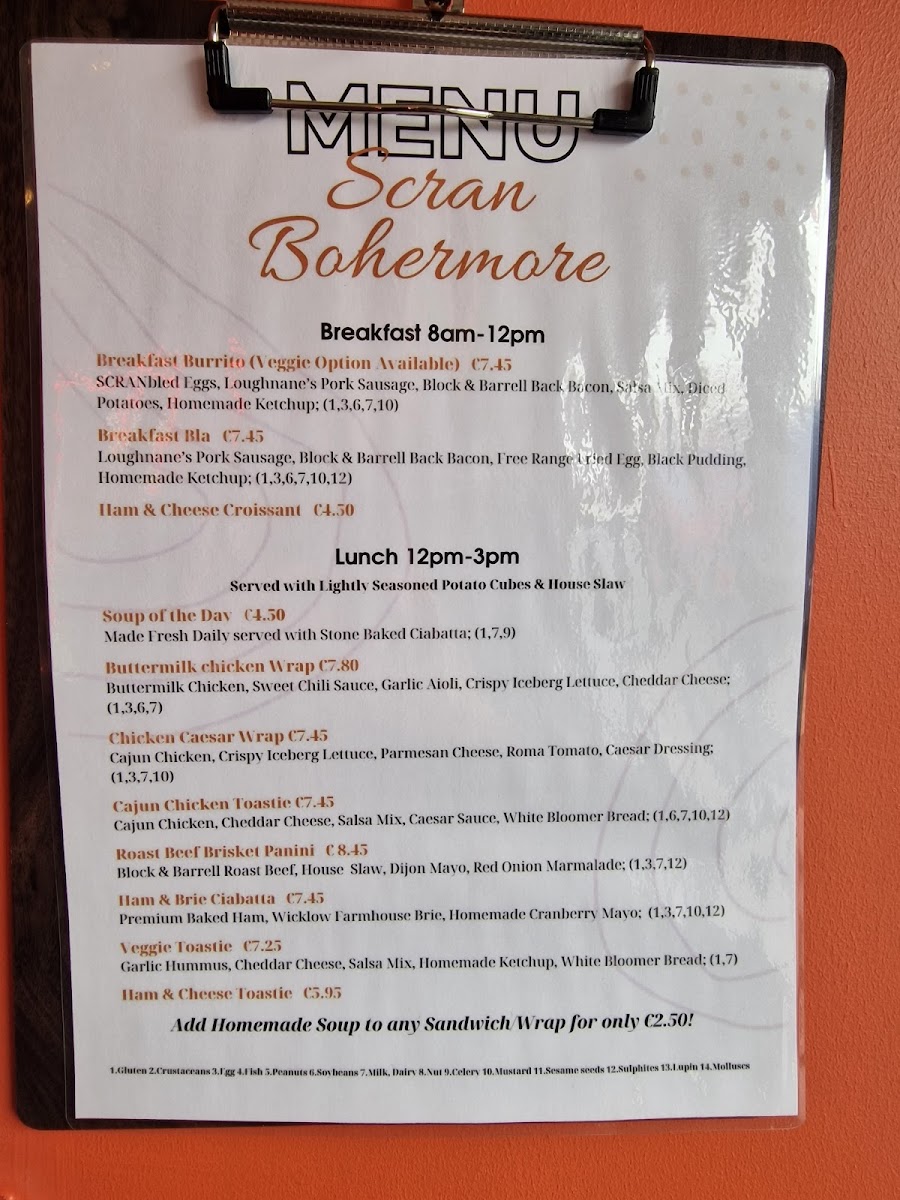 MENU
Scran
Bohermore
Breakfast 8am-12pm
Breakfast Burrito (Veggie Option Available) €7.45
SCRANbled Eggs, Loughnane's Pork Sausage, Block & Barrell Back Bacon, Salsa Mix, Diced
Potatoes, Homemade Ketchup; (1,3,6,7,10)
Breakfast Bla €7.45
Loughnane's Pork Sausage, Block & Barrell Back Bacon, Free Range Fried Egg, Black Pudding,
Homemade Ketchup; (1,3,6,7,10,12)
Ham & Cheese Croissant €4.50
Lunch 12pm-3pm
Served with Lightly Seasoned Potato Cubes & House Slaw
Soup of the Day €4.50
Made Fresh Daily served with Stone Baked Ciabatta; (1,7,9)
Buttermilk chicken Wrap €7.80
Buttermilk Chicken, Sweet Chili Sauce, Garlic Aioli, Crispy Iceberg Lettuce, Cheddar Cheese;
(1,3,6,7)
Chicken Caesar Wrap €7.45
Cajun Chicken, Crispy Iceberg Lettuce, Parmesan Cheese, Roma Tomato, Caesar Dressing;
(1,3,7,10)
Cajun Chicken Toastie €7.45
Cajun Chicken, Cheddar Cheese, Salsa Mix, Caesar Sauce, White Bloomer Bread; (1,6,7,10,12)
Roast Beef Brisket Panini € 8.45
Block & Barrell Roast Beef, House Slaw, Dijon Mayo, Red Onion Marmalade; (1,3,7,12)
Ham & Brie Ciabatta €7.45
Premium Baked Ham, Wicklow Farmhouse Brie, Homemade Cranberry Mayo; (1,3,7,10,12)
Veggie Toastie €7.25
Garlic Hummus, Cheddar Cheese, Salsa Mix, Homemade Ketchup, White Bloomer Bread; (1,7)
Ham & Cheese Toastie €5.95
Add Homemade Soup to any Sandwich/Wrap for only €2.50!
1.Gluten 2.Crustaceans 3.Egg 4.Fish 5.Peanuts 6.Soybeans 7.Milk, Dairy 8.Nut 9.Celery 10.Mustard 11.Sesame seeds 12.Sulphites 13.Lupin 14.Molluscs